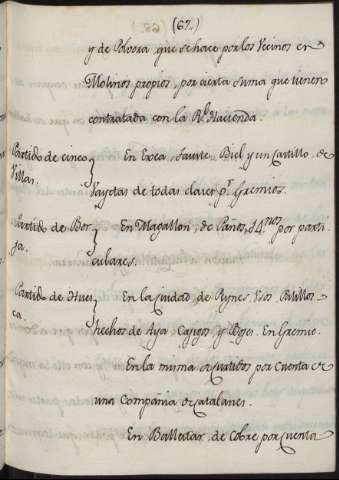 (67.)
y de Polvora, que se hace por los Vecinos en
Molinos propios, por cierta suma que tienen
contratada con la Rl. Hacienda.
Partido de cinco Villas. } En Exea, Sauste, Biel y un Castillo, de
Bayetas de todas clases pr. Gremios.
Partido de Borja. } En Magallon, de Paños, 14.nos por parti
culares.
Partido de Huesca. } En la Ciudad, de Peynes, Usos Palillos
hechos de Aya Cajojos, y Bojes. En Gremio.
En la misma, de Curtidos por cuenta de
una Compañia de Catalanes.
En Ballestar, de Cobre por cuenta